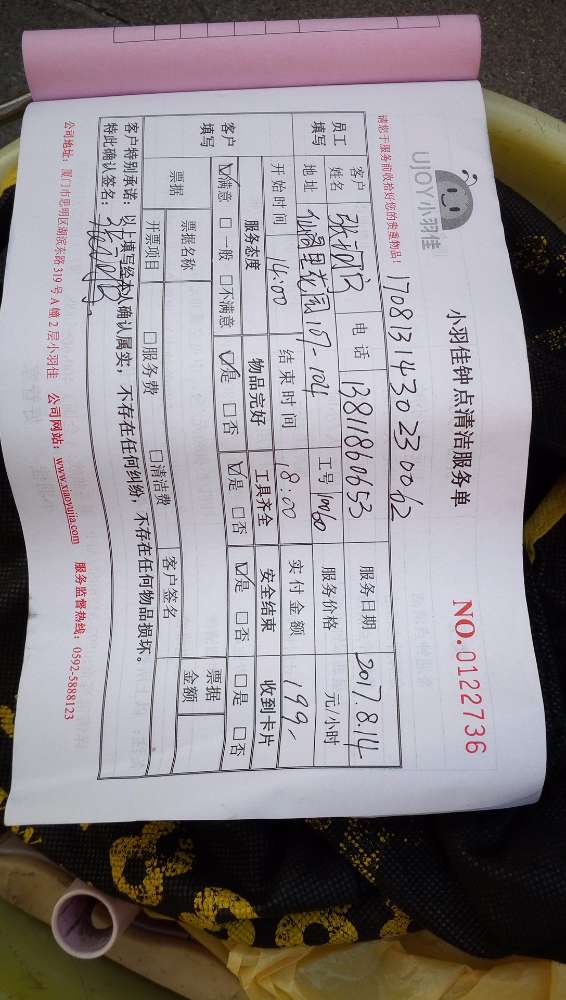 UJOY小羽佳
小羽佳钟点清洁服务单
NO.0122736
请您于服务前收拾好您的贵重物品！
1708131430230062
员工填写
客户姓名
电话 13811860653
服务日期 2017.8.14
地址 仙阁里花园107-104
工号
服务价格 元/小时
开始时间 14:00
结束时间 18:00
实付金额 199-
客户填写
服务态度 物品完好 工具齐全 安全结束 收到卡片
☑满意 □一般 □不满意 ☑是 □否 ☑是 □否 ☑是 □否 □是 □否
票据 票据名称 票据金额
开票项目 □服务费 □清洁费 客户签名
客户特别承诺：以上填写经本人确认属实，不存在任何纠纷，不存在任何物品损坏。
特此确认签名：
公司地址：厦门市思明区湖滨东路319号A幢2层小羽佳 公司网站：www.xiaoyujia.com 服务监督热线：0592-5888123